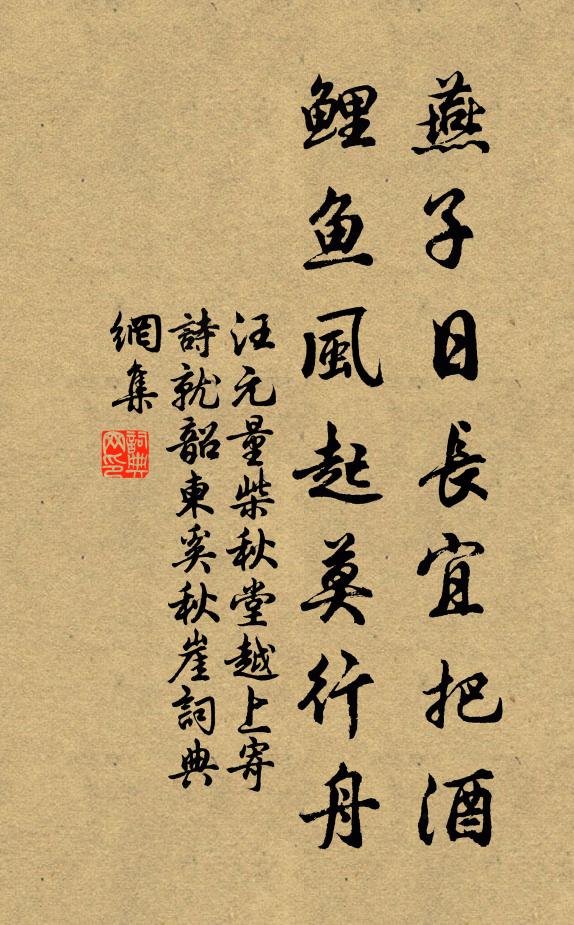 燕子日長宜把酒
鯉鱼風起莫行舟
汪元量柴秋堂越上寄
詩就韶東奚秋崖詞典
網集
詞典
网印